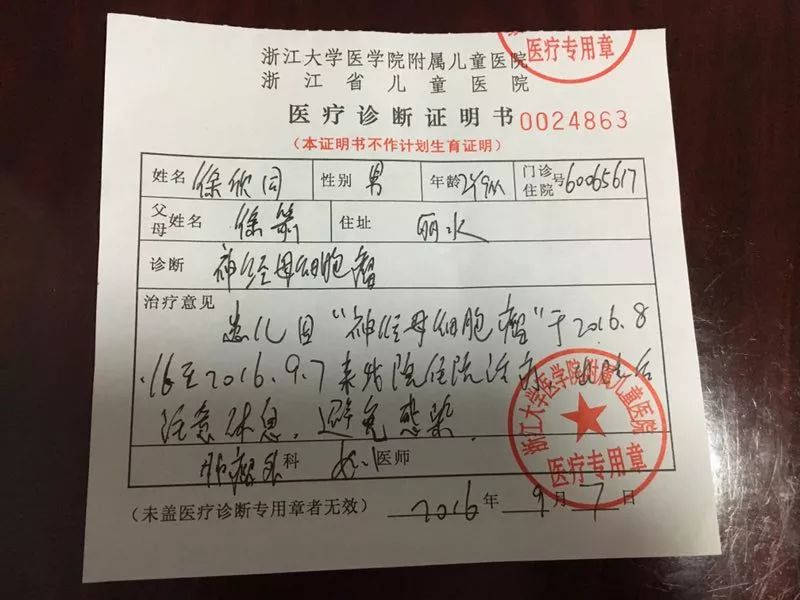 医疗专用章
浙江大学医学院附属儿童医院
浙江省儿童医院
医疗诊断证明书 0024863
(本证明书不作计划生育证明)
姓名 徐欣同 性别 男 年龄 2Y9M 门诊住院号 60065617
父母姓名 徐 住址 丽水
诊断 神经母细胞瘤
治疗意见
患儿因"神经母细胞瘤"于2016.8
.16至2016.9.7来我院住院治疗,出院后
注意休息,避免感染.
肿瘤外科 医师
浙江大学医学院附属儿童医院
医疗专用章
(未盖医疗诊断专用章者无效) 2016年9月7日